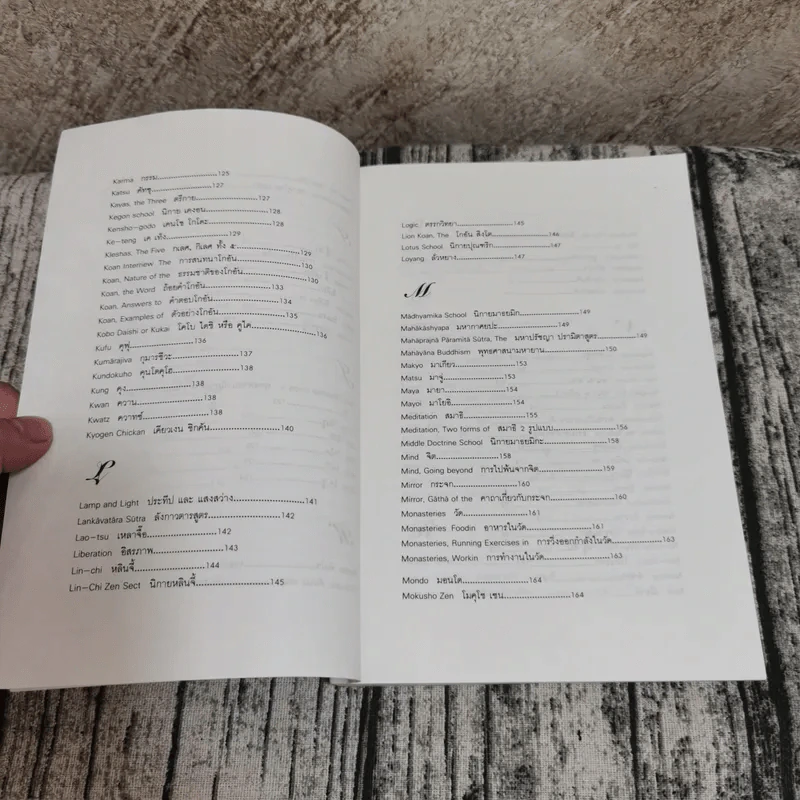 Karma กรรม..............................125
Katsu คัทซุ..............................127
Kayas, the Three ตรีกาย..............................127
Kegon school นิกาย เคงอน..............................128
Kensho-godo เคนโช โกโดะ..............................128
Ke-teng เค เท้ง..............................129
Kleshas, The Five กเลศ, กิเลศ ทั้ง ๕..............................129
Koan Interview The การสนทนาโกอัน..............................130
Koan, Nature of the ธรรมชาติของโกอัน..............................130
Koan, the Word ถ้อยคำโกอัน..............................133
Koan, Answers to คำตอบโกอัน..............................134
Koan, Examples of ตัวอย่างโกอัน..............................135
Kobo Daishi or Kukai โคโบ ไดชิ หรือ คูไค..............................136
Kufu คุฟุ..............................136
Kumārajiva กุมารชีวะ..............................137
Kundokuho คุนโดคุโฮ..............................138
Kung คุง..............................138
Kwan ควาน..............................138
Kwatz ควาทซ์..............................138
Kyogen Chickan เคียวเงน ชิกคัน..............................140
L
Lamp and Light ประทีป และ แสงสว่าง..............................141
Lankāvatāra Sūtra ลังกาวตารสูตร..............................142
Lao-tsu เหลาจื๊อ..............................142
Liberation อิสรภาพ..............................143
Lin-chi หลินจี้..............................144
Lin-Chi Zen Sect นิกายหลินจี้..............................145
Logic ตรรกวิทยา..............................145
Lion Koan, The โกอัน สิงโต..............................146
Lotus School นิกายปุณฑริก..............................147
Loyang ลั่วหยาง..............................147
M
Mādhyamika School นิกายมาธยมิก..............................149
Mahākāshyapa มหากาศยปะ..............................149
Mahāprajnā Pāramitā Sūtra, The มหาปรัชญา ปรามิตาสูตร..............................149
Mahāyāna Buddhism พุทธศาสนามหายาน..............................150
Makyo มาเกียว..............................153
Matsu มาจู่..............................153
Maya มายา..............................154
Mayoi มาโยอิ..............................154
Meditation สมาธิ..............................155
Meditation, Two forms of สมาธิ ๒ รูปแบบ..............................156
Middle Doctrine School นิกายมาธยมิกะ..............................158
Mind จิต..............................158
Mind, Going beyond การไปพ้นจากจิต..............................159
Mirror กระจก..............................160
Mirror, Gāthā of the คาถาเกี่ยวกับกระจก..............................160
Monasteries วัด..............................161
Monasteries Foodin อาหารในวัด..............................161
Monasteries, Running Exercises in การวิ่งออกกำลังในวัด..............................163
Monasteries, Workin การทำงานในวัด..............................163
Mondo มอนโด..............................164
Mokusho Zen โมคุโช เซน..............................164